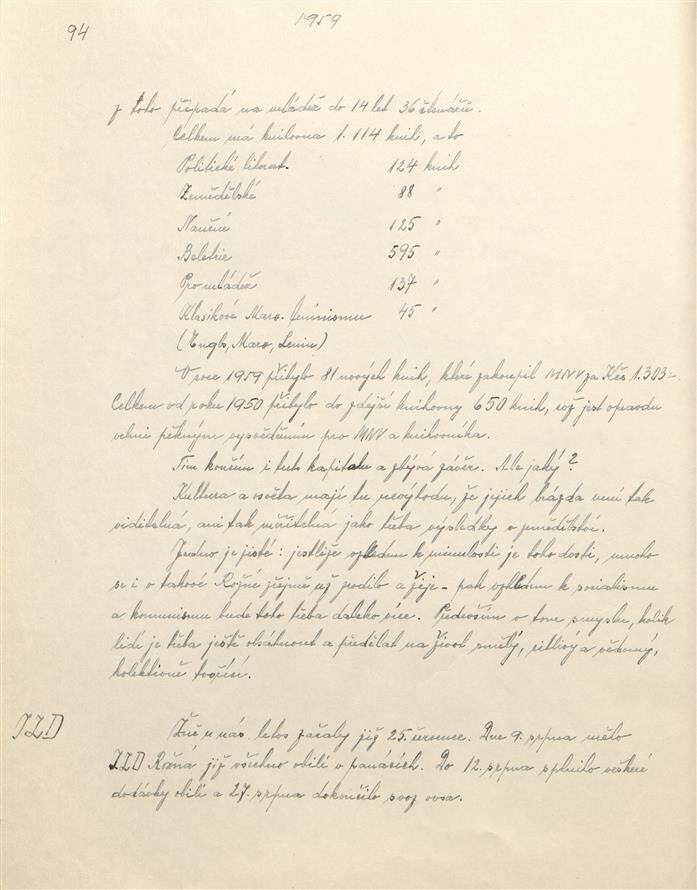 94
1959
z toho připadá na mládež do 14 let 36 čtenářů.
Celkem má knihovna 1.114 knih, a to
Politické literat. 124 knih
Zemědělské 88 "
Naučné 125 "
Beletrie 595 "
Pro mládež 137 "
Klasikové Marx. leninismu 45 "
(Engls, Marx, Lenin)
V roce 1959 přibylo 81 nových knih, které zakoupil MNV za Kčs 1.303.-
Celkem od roku 1950 přibylo do zdejší knihovny 650 knih, což jest opravdu
velmi pěkným vysvědčením pro MNV a knihovníka.
Tím končím i tuto kapitolu a zbývá závěr. Ale jaký?
Kultura a osvěta mají tu nevýhodu, že jejich brázda není tak
viditelná, ani tak měřitelná jako třeba výsledky v zemědělství.
Jedno je jisté: jestliže vzhledem k minulosti je toho dosti, mnoho
se i v takové Rožné zřejmě už zrodilo a žije - pak vzhledem k socialismu
a komunismu bude toho třeba daleko více. Především v tom smyslu, kolik
lidí je třeba ještě obsáhnout a předělat na život smělý, citlivý a vědomý,
kolektivně tvořící.
JZD
Žně u nás letos začaly již 25. července. Dne 9. srpna mělo
JZD Rožná již všechno obilí v panácích. Do 12. srpna splnilo veškeré
dodávky obilí a 27. srpna dokončilo svoz ovsa.